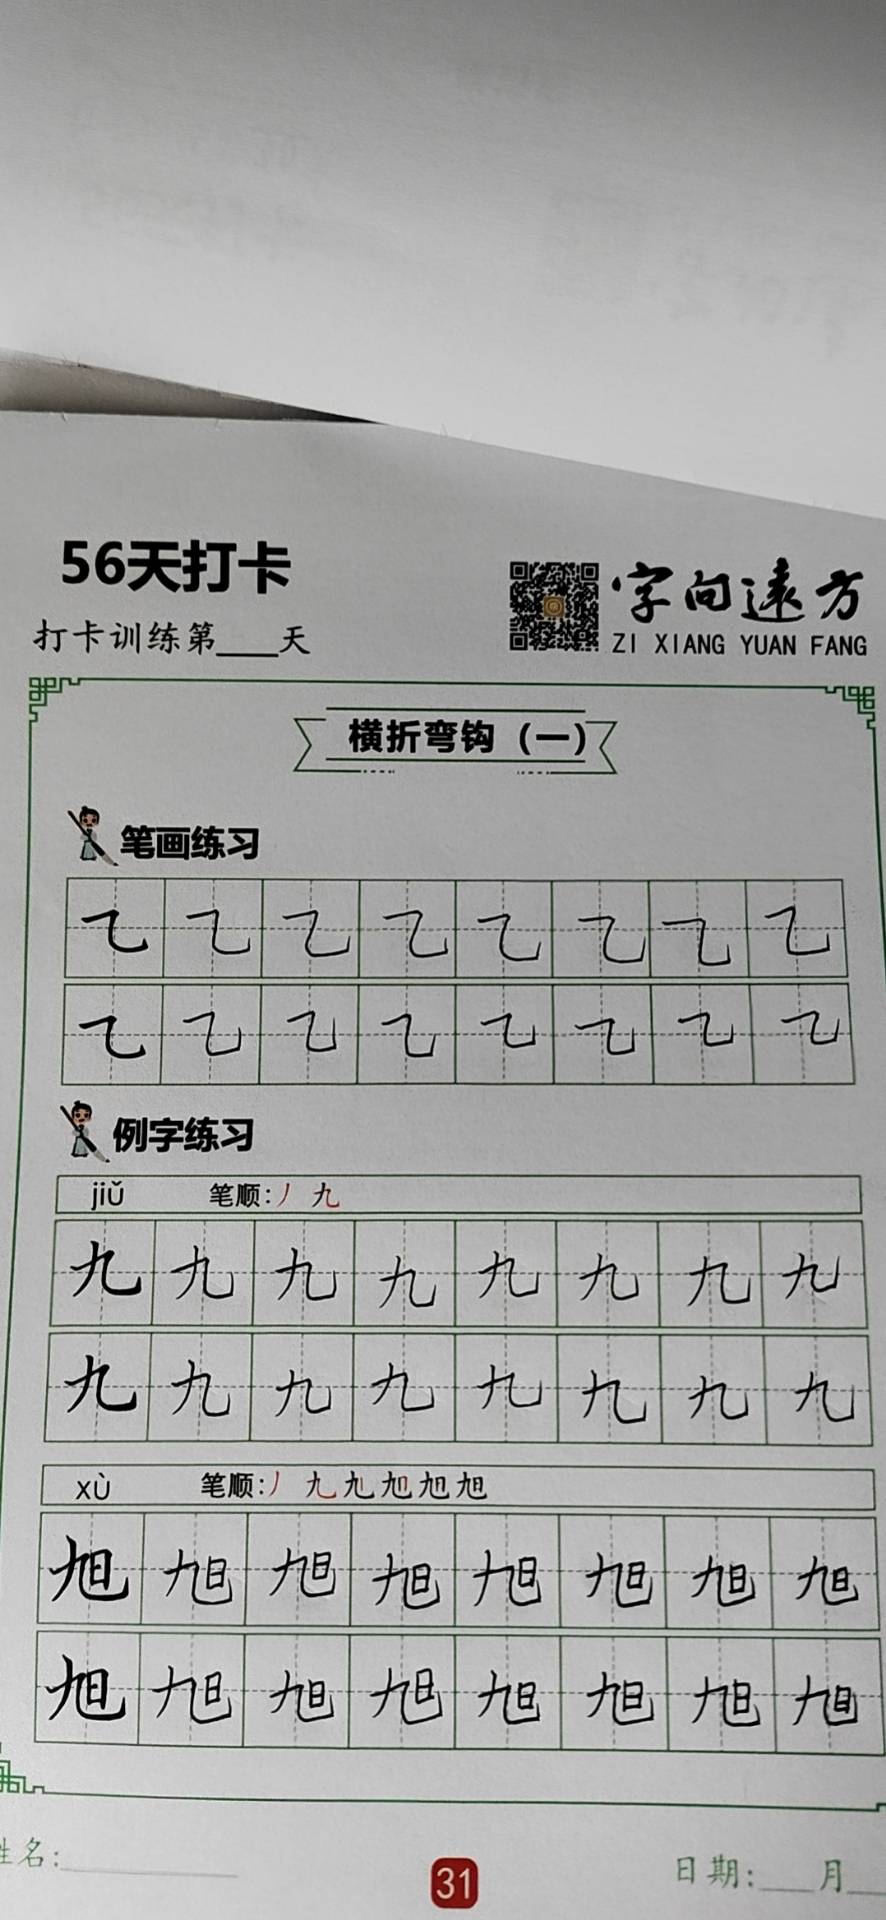 56天打卡
字向远方
打卡训练第____天
ZI XIANG YUAN FANG
横折弯钩（一）
笔画练习
乙 乙 乙 乙 乙 乙 乙 乙
乙 乙 乙 乙 乙 乙 乙 乙
例字练习
jiǔ 笔顺:丿 九
九 九 九 九 九 九 九 九
九 九 九 九 九 九 九 九
xù 笔顺:丿 九 旭 旭 旭 旭
旭 旭 旭 旭 旭 旭 旭 旭
旭 旭 旭 旭 旭 旭 旭 旭
姓名:____
31
日期:____月__